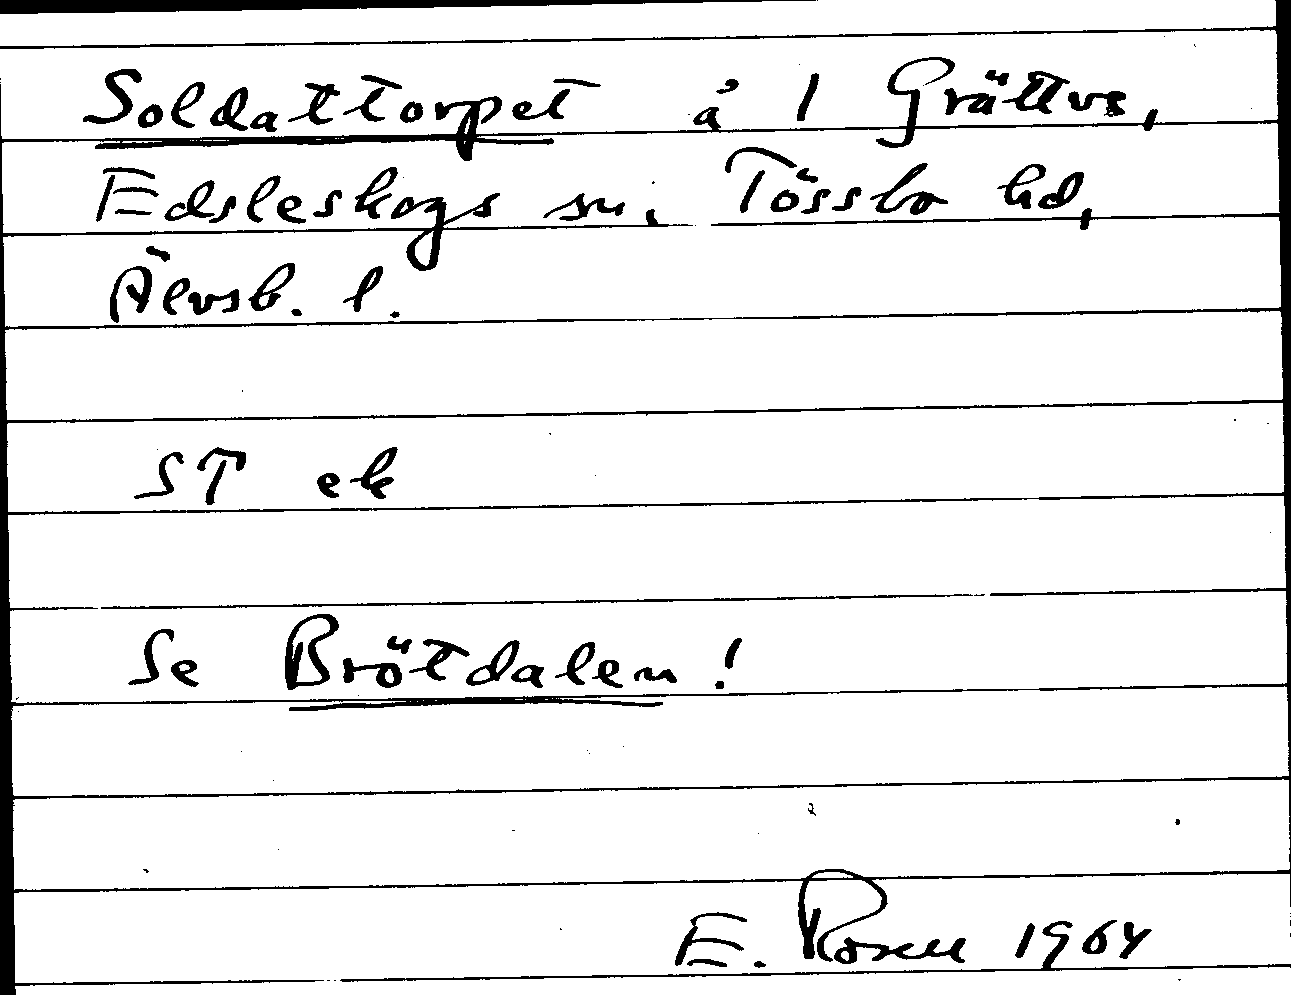 Soldattorpet å 1 Grättvs,
Edsleskogs sn. Tössbo hd,
Älvsb. l.
ST ek
Se Brötdalen!
E. Rosen 1964